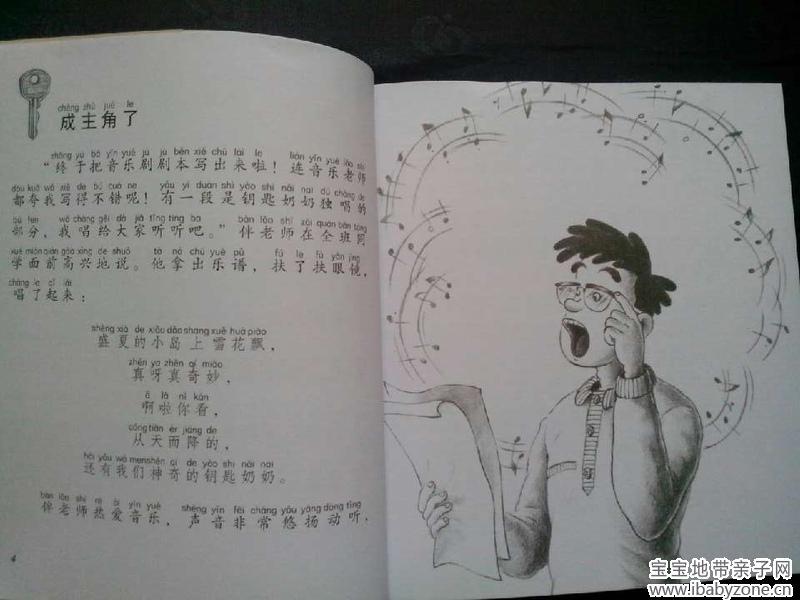 chéng zhǔ jué le
成主角了
zhōng yú bǎ yīn yuè jù jù běn xiě chū lái le lián yīn yuè lǎo shī
“终于把音乐剧剧本写出来啦！连音乐老师
dōu kuā wǒ xiě de bú cuò ne yǒu yí duàn shì yào shi nǎi nai dú chàng de
都夸我写得不错呢！有一段是钥匙奶奶独唱的
bù fen wǒ chàng gěi dà jiā tīng ting ba bàn lǎo shī zài quán bān tóng
部分，我唱给大家听听吧。”伴老师在全班同
xué miàn qián gāo xìng de shuō tā ná chū yuè pǔ fú le fú yǎn jìng
学面前高兴地说。他拿出乐谱，扶了扶眼镜，
chàng le qǐ lái
唱了起来：
shèng xià de xiǎo dǎo shang xuě huā piāo
盛夏的小岛上雪花飘，
zhēn ya zhēn qí miào
真呀真奇妙，
ā lā nǐ kàn
啊啦你看，
cóng tiān ér jiàng de
从天而降的，
hái yǒu wǒ men shén qí de yào shi nǎi nai
还有我们神奇的钥匙奶奶。
bàn lǎo shī rè ài yīn yuè shēng yīn fēi cháng yōu yáng dòng tīng
伴老师热爱音乐，声音非常悠扬动听，
4
宝宝地带亲子网
www.ibabyzone.cn